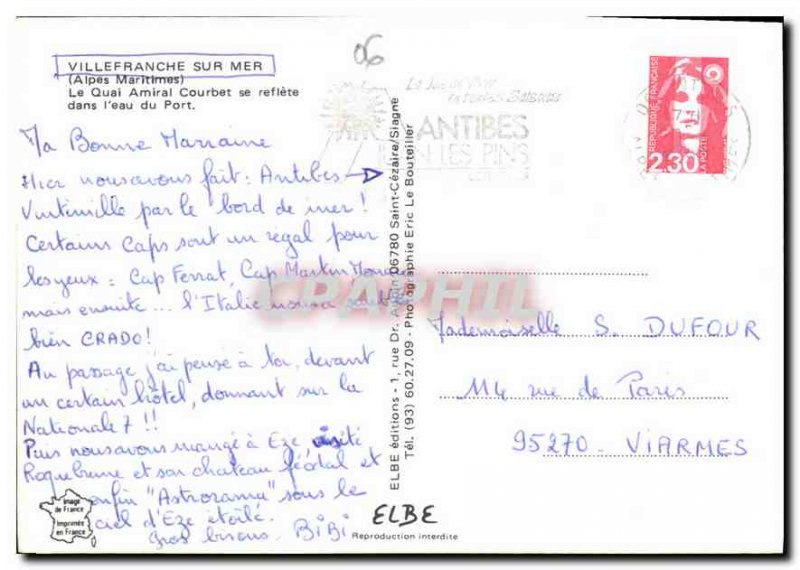 06
VILLEFRANCHE SUR MER
(Alpes Maritimes)
Le Quai Amiral Courbet se reflète
dans l'eau du Port.
Ma Bonne Marraine
Hier nous avons fait : Antibes →
Vintimille par le bord de mer !
Certains Caps sont un régal pour
les yeux : Cap Ferrat, Cap Martin
mais ensuite... l'Italie nous a
bien CRADO !
Au passage j'ai pensé à toi, devant
un certain hôtel, donnant sur la
Nationale 7 !!
Puis nous avons mangé à Eze visité
Roquebrune et son chateau féodal et
enfin "Astrorama" sous le
ciel d'Eze étoilé.
Gros bisous. BiBi
Image
de France
Imprimée
en France
ELBE éditions - 1, rue Dr. 06780 Saint-Cézaire/Siagne
Tél. (93) 60.27.09 - Photographie Eric Le Bouteiller
ELBE
Reproduction interdite
ANTIBES
LES PINS
REPUBLIQUE FRANÇAISE
2,30
LA POSTE
Mademoiselle S. DUFOUR
114 rue de Paris
95270 - VIARMES
CPAPHIL